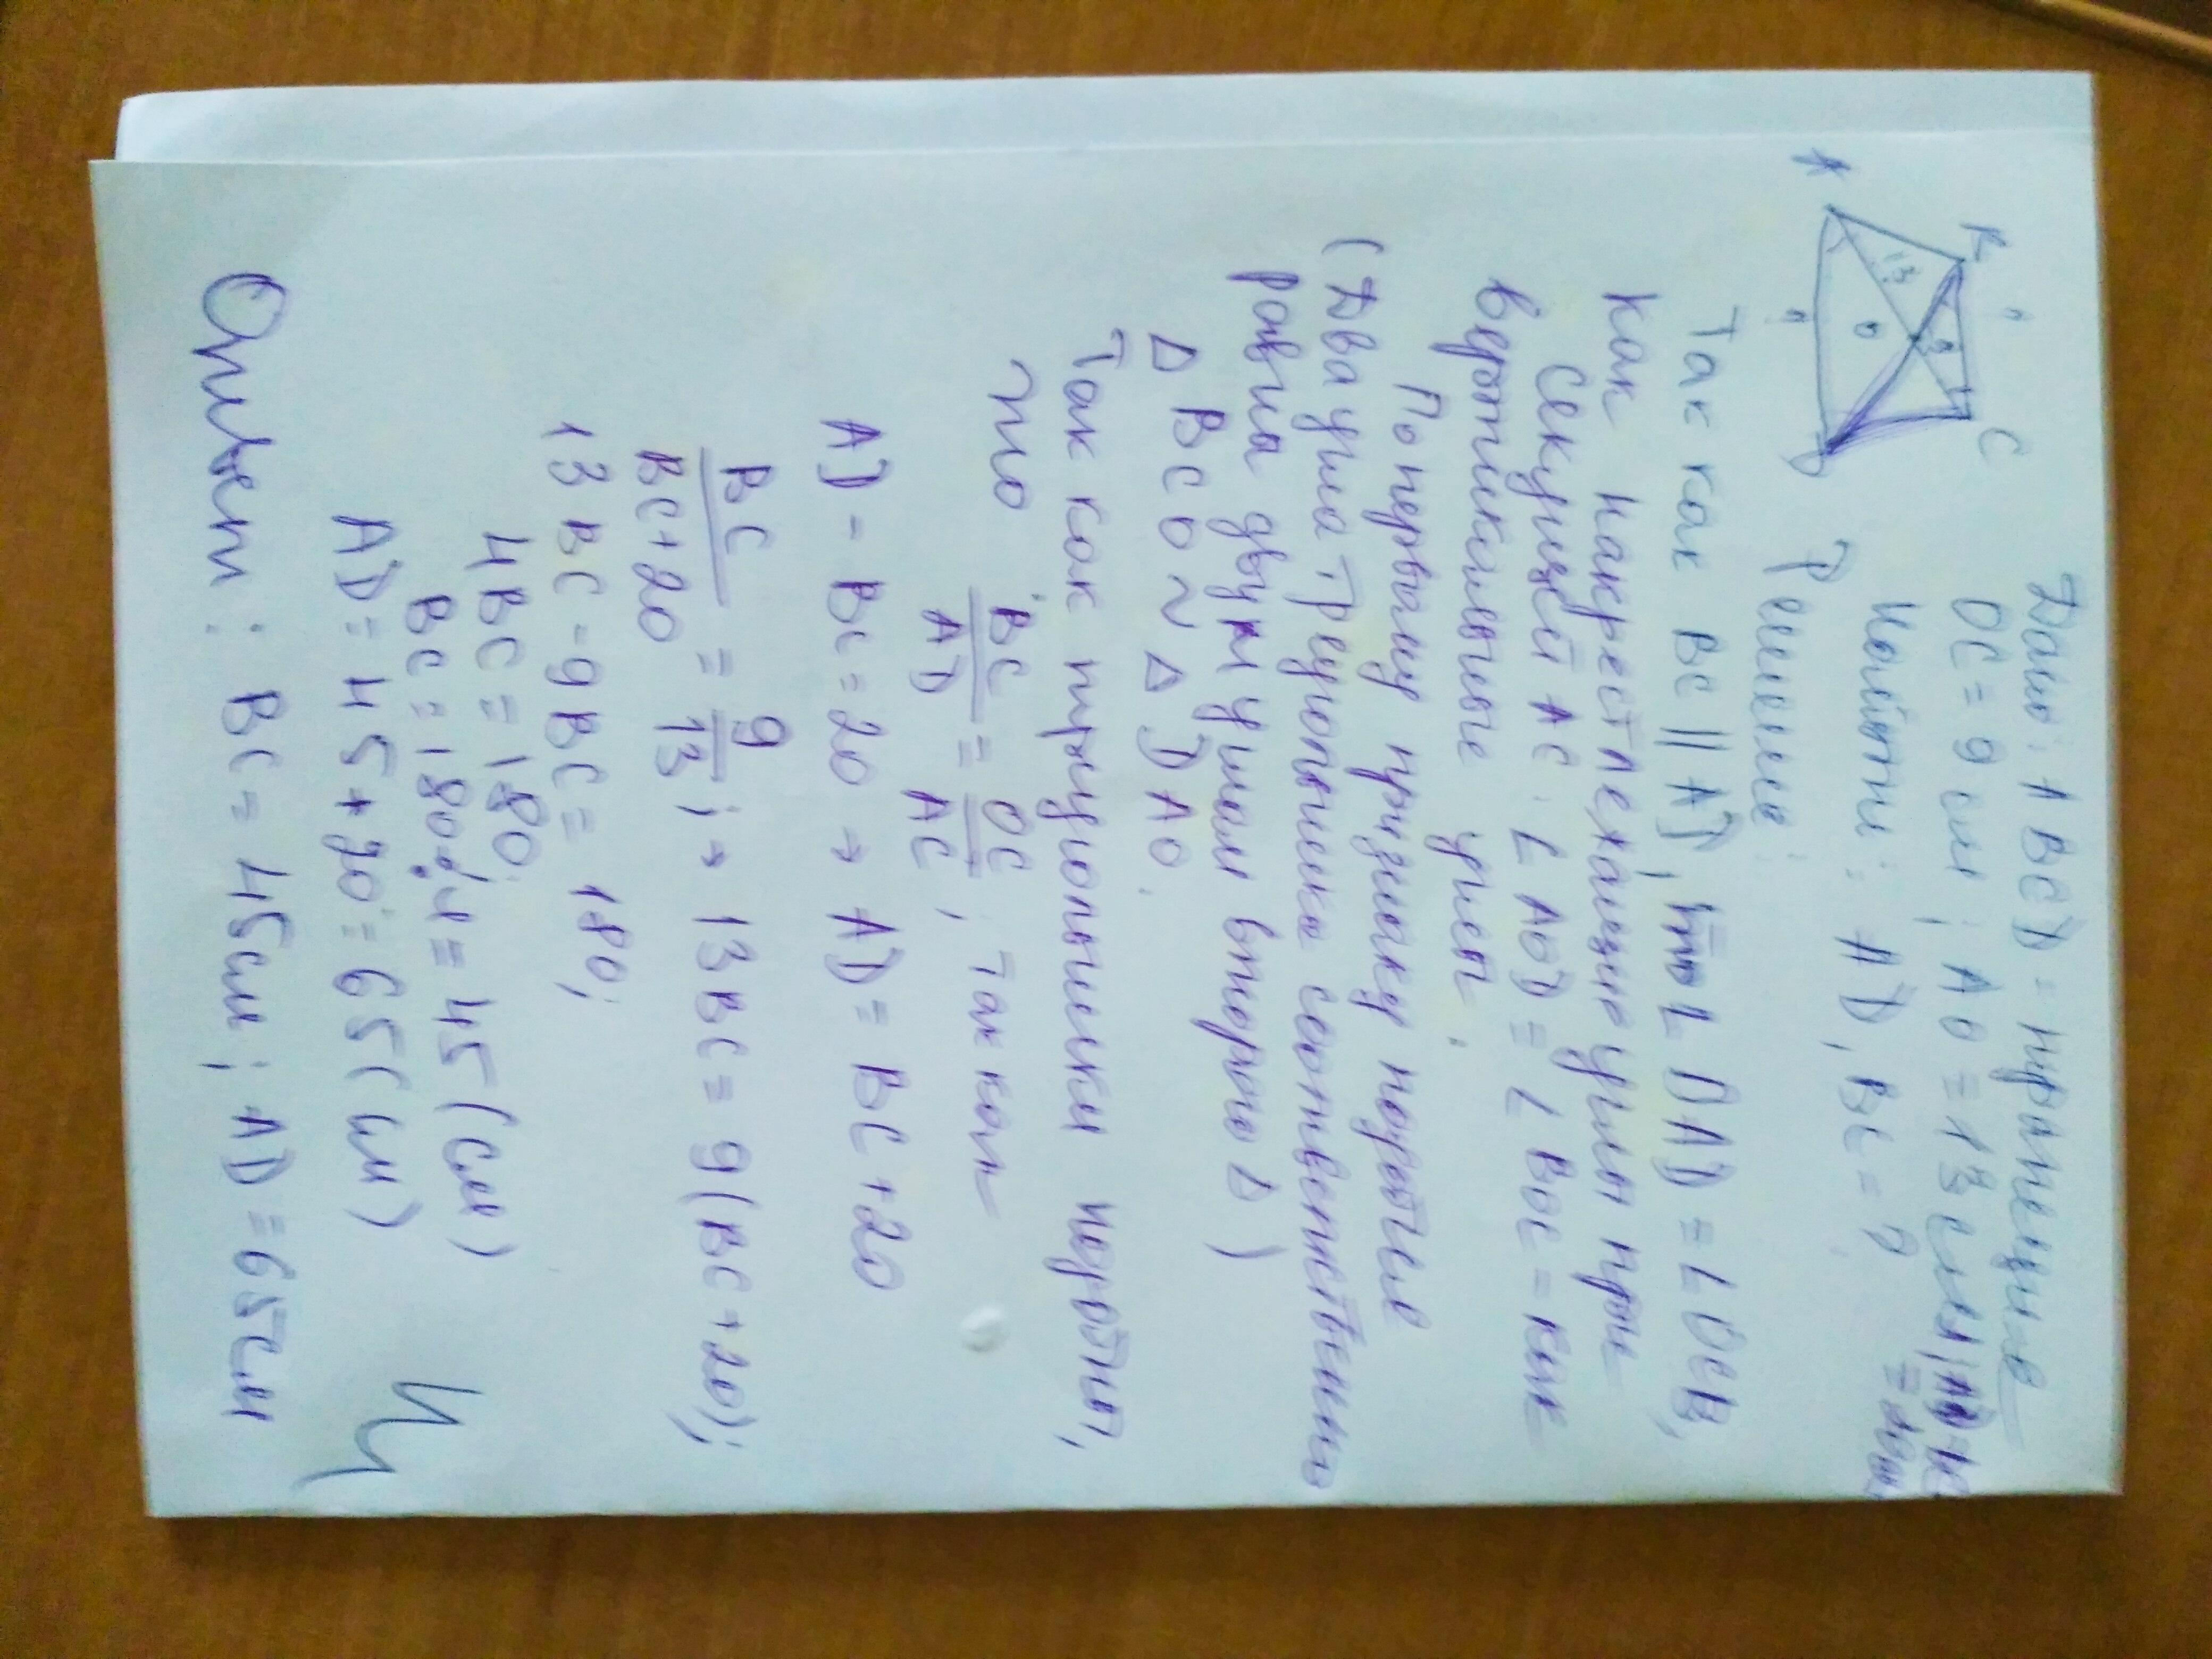 Дано: ABCD = трапеция
OC = 9 см; AO = 13 см, AD - BC = 20 см
Найти: AD, BC = ?
B
C
A
D
O
13
9
Решение:
Так как BC || AD, то ∠ OAD = ∠ OCB,
как накрест лежащие углы при
секущей AC. ∠ AOD = ∠ BOC = как
вертикальные углы.
По первому признаку подобия
(Два угла треугольника соответственно
равны двум углам второго Δ)
Δ BCO ~ Δ DAO.
Так как треугольники подобны,
то BC/AD = OC/AC, так как
AD - BC = 20 → AD = BC + 20
BC/BC+20 = 9/13; → 13BC = 9(BC+20);
13BC - 9BC = 180;
4BC = 180;
BC = 180:4 = 45 (см)
AD = 45 + 20 = 65 (см)
Ответ: BC = 45см; AD = 65см